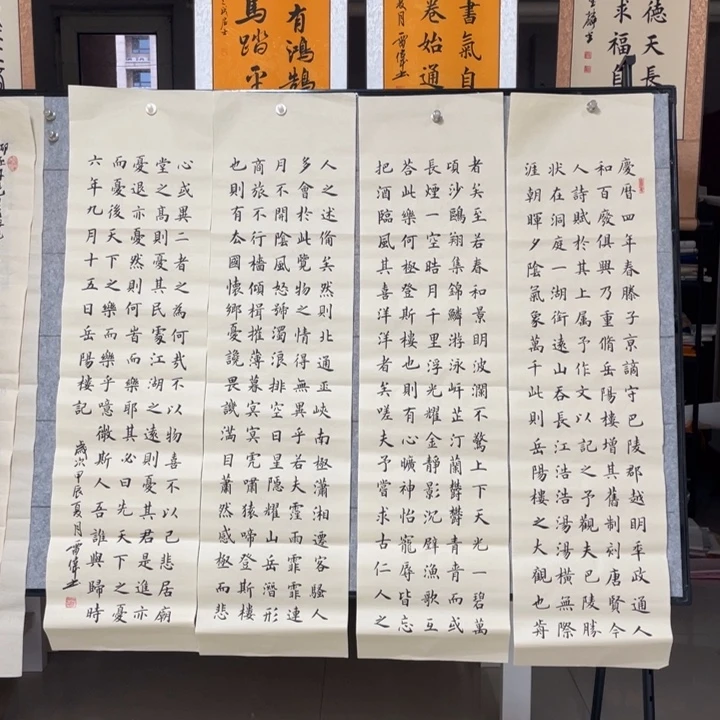 德天長
求福自
書氣自
卷始通
有鴻鵠
馬踏平
慶曆四年春滕子京謫守巴陵郡越明年政通人
和百廢俱興乃重脩岳陽樓增其舊制刻唐賢今
人詩賦於其上属予作文以記之予觀夫巴陵勝
状在洞庭一湖銜遠山吞長江浩浩湯湯橫無際
涯朝暉夕陰氣象萬千此則岳陽樓之大觀也歬
者矣至若春和景明波瀾不驚上下天光一碧萬
頃沙鷗翔集錦鱗游泳岍芷汀蘭欝欝青青而或
長煙一空皓月千里浮光耀金靜影沉璧漁歌互
荅此樂何極登斯樓也則有心曠神怡寵辱皆忘
把酒臨風其喜洋洋者矣嗟夫予嘗求古仁人之
人之述俻矣然則北通巫峽南極瀟湘遷客騷人
多會於此覽物之情得無異乎若夫霪雨霏霏連
月不開陰風怒號濁浪排空日星隱耀山岳潛形
商旅不行檣傾楫摧薄暮冥冥虎嘯猿啼登斯樓
也則有去國懷鄉憂讒畏譏滿目蕭然感極而悲
心或異二者之為何哉不以物喜不以己悲居廟
堂之高則憂其民處江湖之遠則憂其君是進亦
憂退亦憂然則何旹而樂耶其必曰先天下之憂
而憂後天下之樂而樂乎噫微斯人吾誰與歸時
六年九月十五日岳陽樓記 歲次甲辰夏月雷偉書